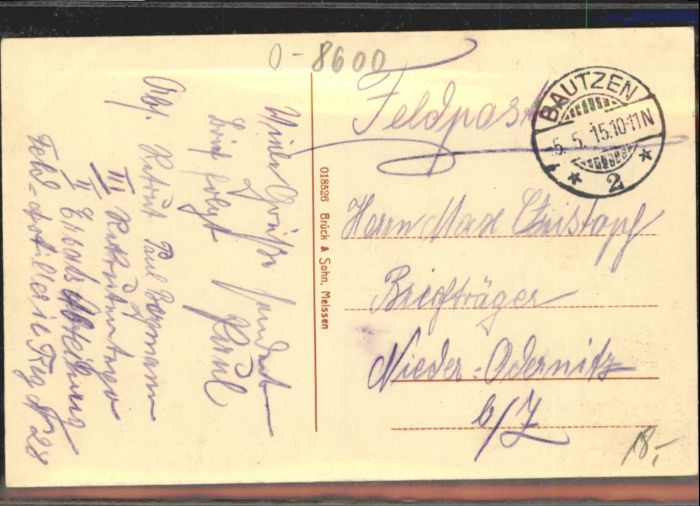 0-8600
Feldpost
BAUTZEN
5.5.15.10-11N
* 2 *
Viele Grüße sendet
Brief folgt Paul
Abs. Rekrut Paul
III Rekrutendepo
II Ersatz Abteilung
Feld-Artillerie Reg No 28
018526 Brück & Sohn, Meissen
Herrn Max Christoph
Briefträger
Nieder-Oderwitz
b/Z
18,-